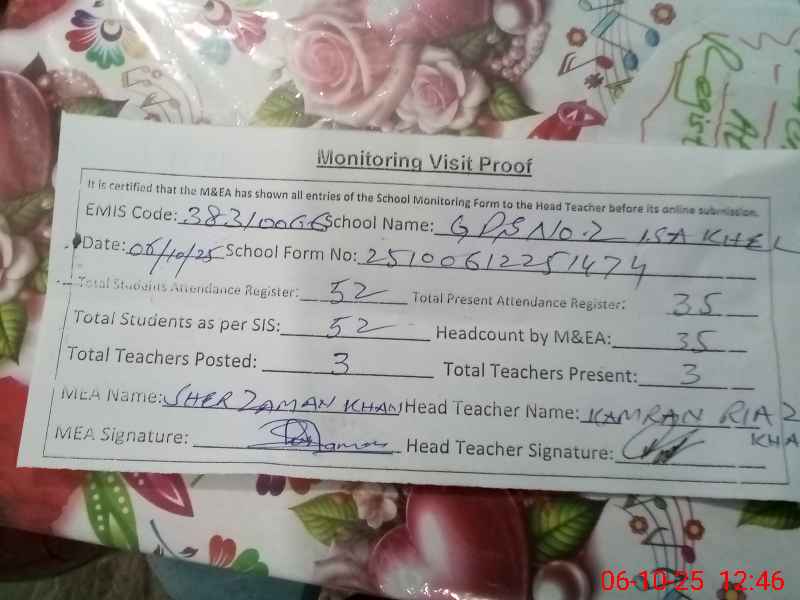 Monitoring Visit Proof
It is certified that the M&EA has shown all entries of the School Monitoring Form to the Head Teacher before its online submission.
EMIS Code: 38310066 School Name: GPS NO.2 ISA KHEL
Date: 06/10/25 School Form No: 25100612251474
Total Students Attendance Register: 52 Total Present Attendance Register: 35
Total Students as per SIS: 52 Headcount by M&EA: 35
Total Teachers Posted: 3 Total Teachers Present: 3
MEA Name: SHER ZAMAN KHAN Head Teacher Name: KAMRAN RIAZ
KHA
MEA Signature: Head Teacher Signature:
Regist
06-10-25 12:46